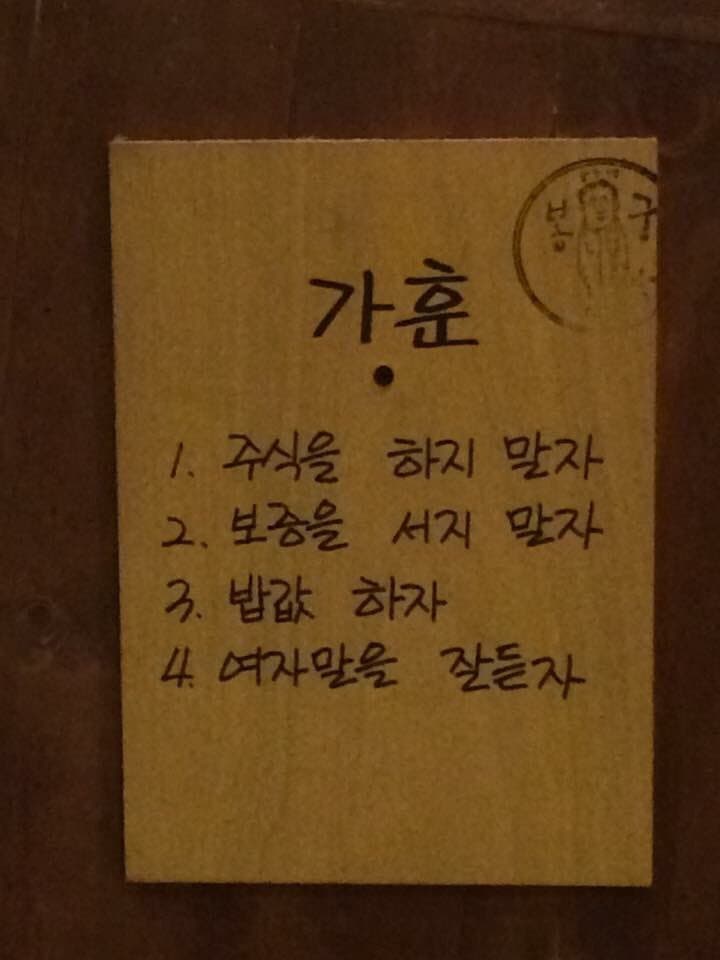 봉구
가훈
1. 주식을 하지 말자
2. 보증을 서지 말자
3. 밥값 하자
4. 여자말을 잘듣자